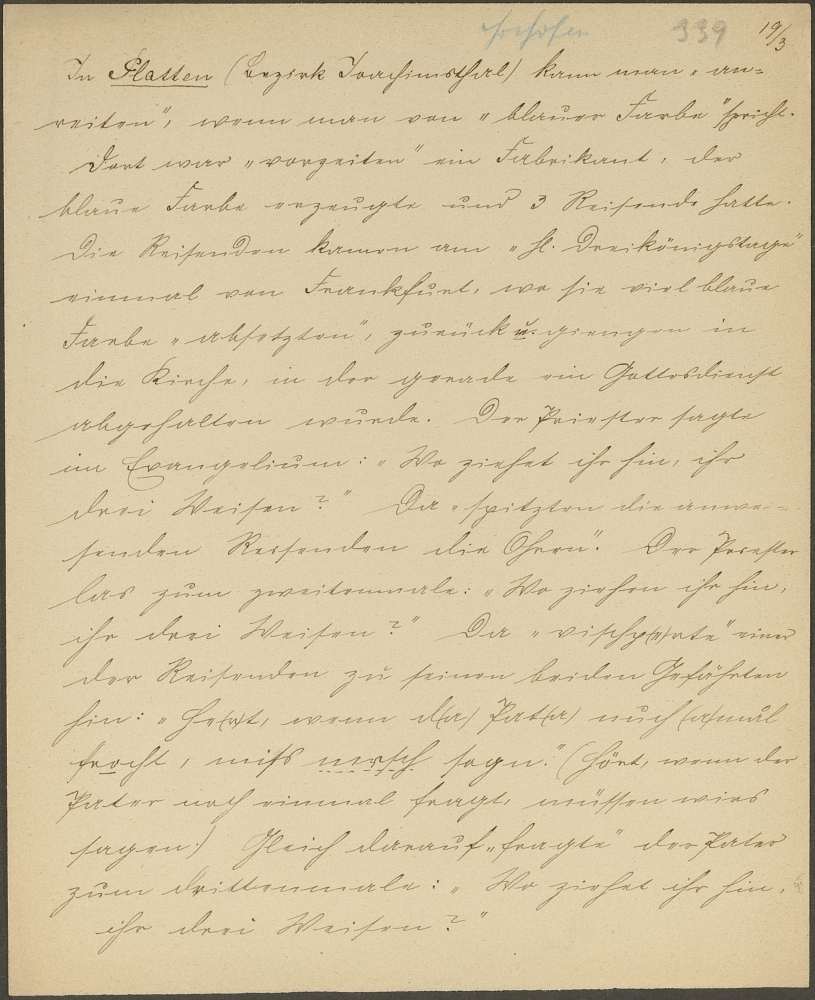 339 19/3
In Platten (Bezirk Joachimsthal) kann man „an=
reiten", wenn man von „blauer Farbe" spricht.
Dort war „vorzeiten" ein Fabrikant, der
blaue Farbe erzeugte und 3 Reisende hatte.
Die Reisenden kamen am „hl. Dreikönigstage"
einmal von Frankfurt, wo sie viel blaue
Farbe „absetzten", zurück u. giengen in
die Kirche, in der gerade ein Gottesdienst
abgehalten wurde. Der Priester sagte
im Evangelium: „Wo ziehet ihr hin, ihr
drei Weisen?" Da „spitzten die anwe=
senden Reisenden die Ohren". Der Priester
las zum zweitenmale: „Wo ziehen ihr hin,
ihr drei Weisen?" Da „vischp(e)rte" einer
der Reisenden zu seinen beiden Gefährten
hin: „He(r)t, wenn d(a) Pat(a) nuch (a)mål
frocht, miss mersch sogn." (Hört, wenn der
Pater noch einmal fragt, müssen wirs
sagen.) Gleich darauf „fragte" der Pater
zum drittenmale: „Wo ziehet ihr hin,
ihr drei Weisen?"